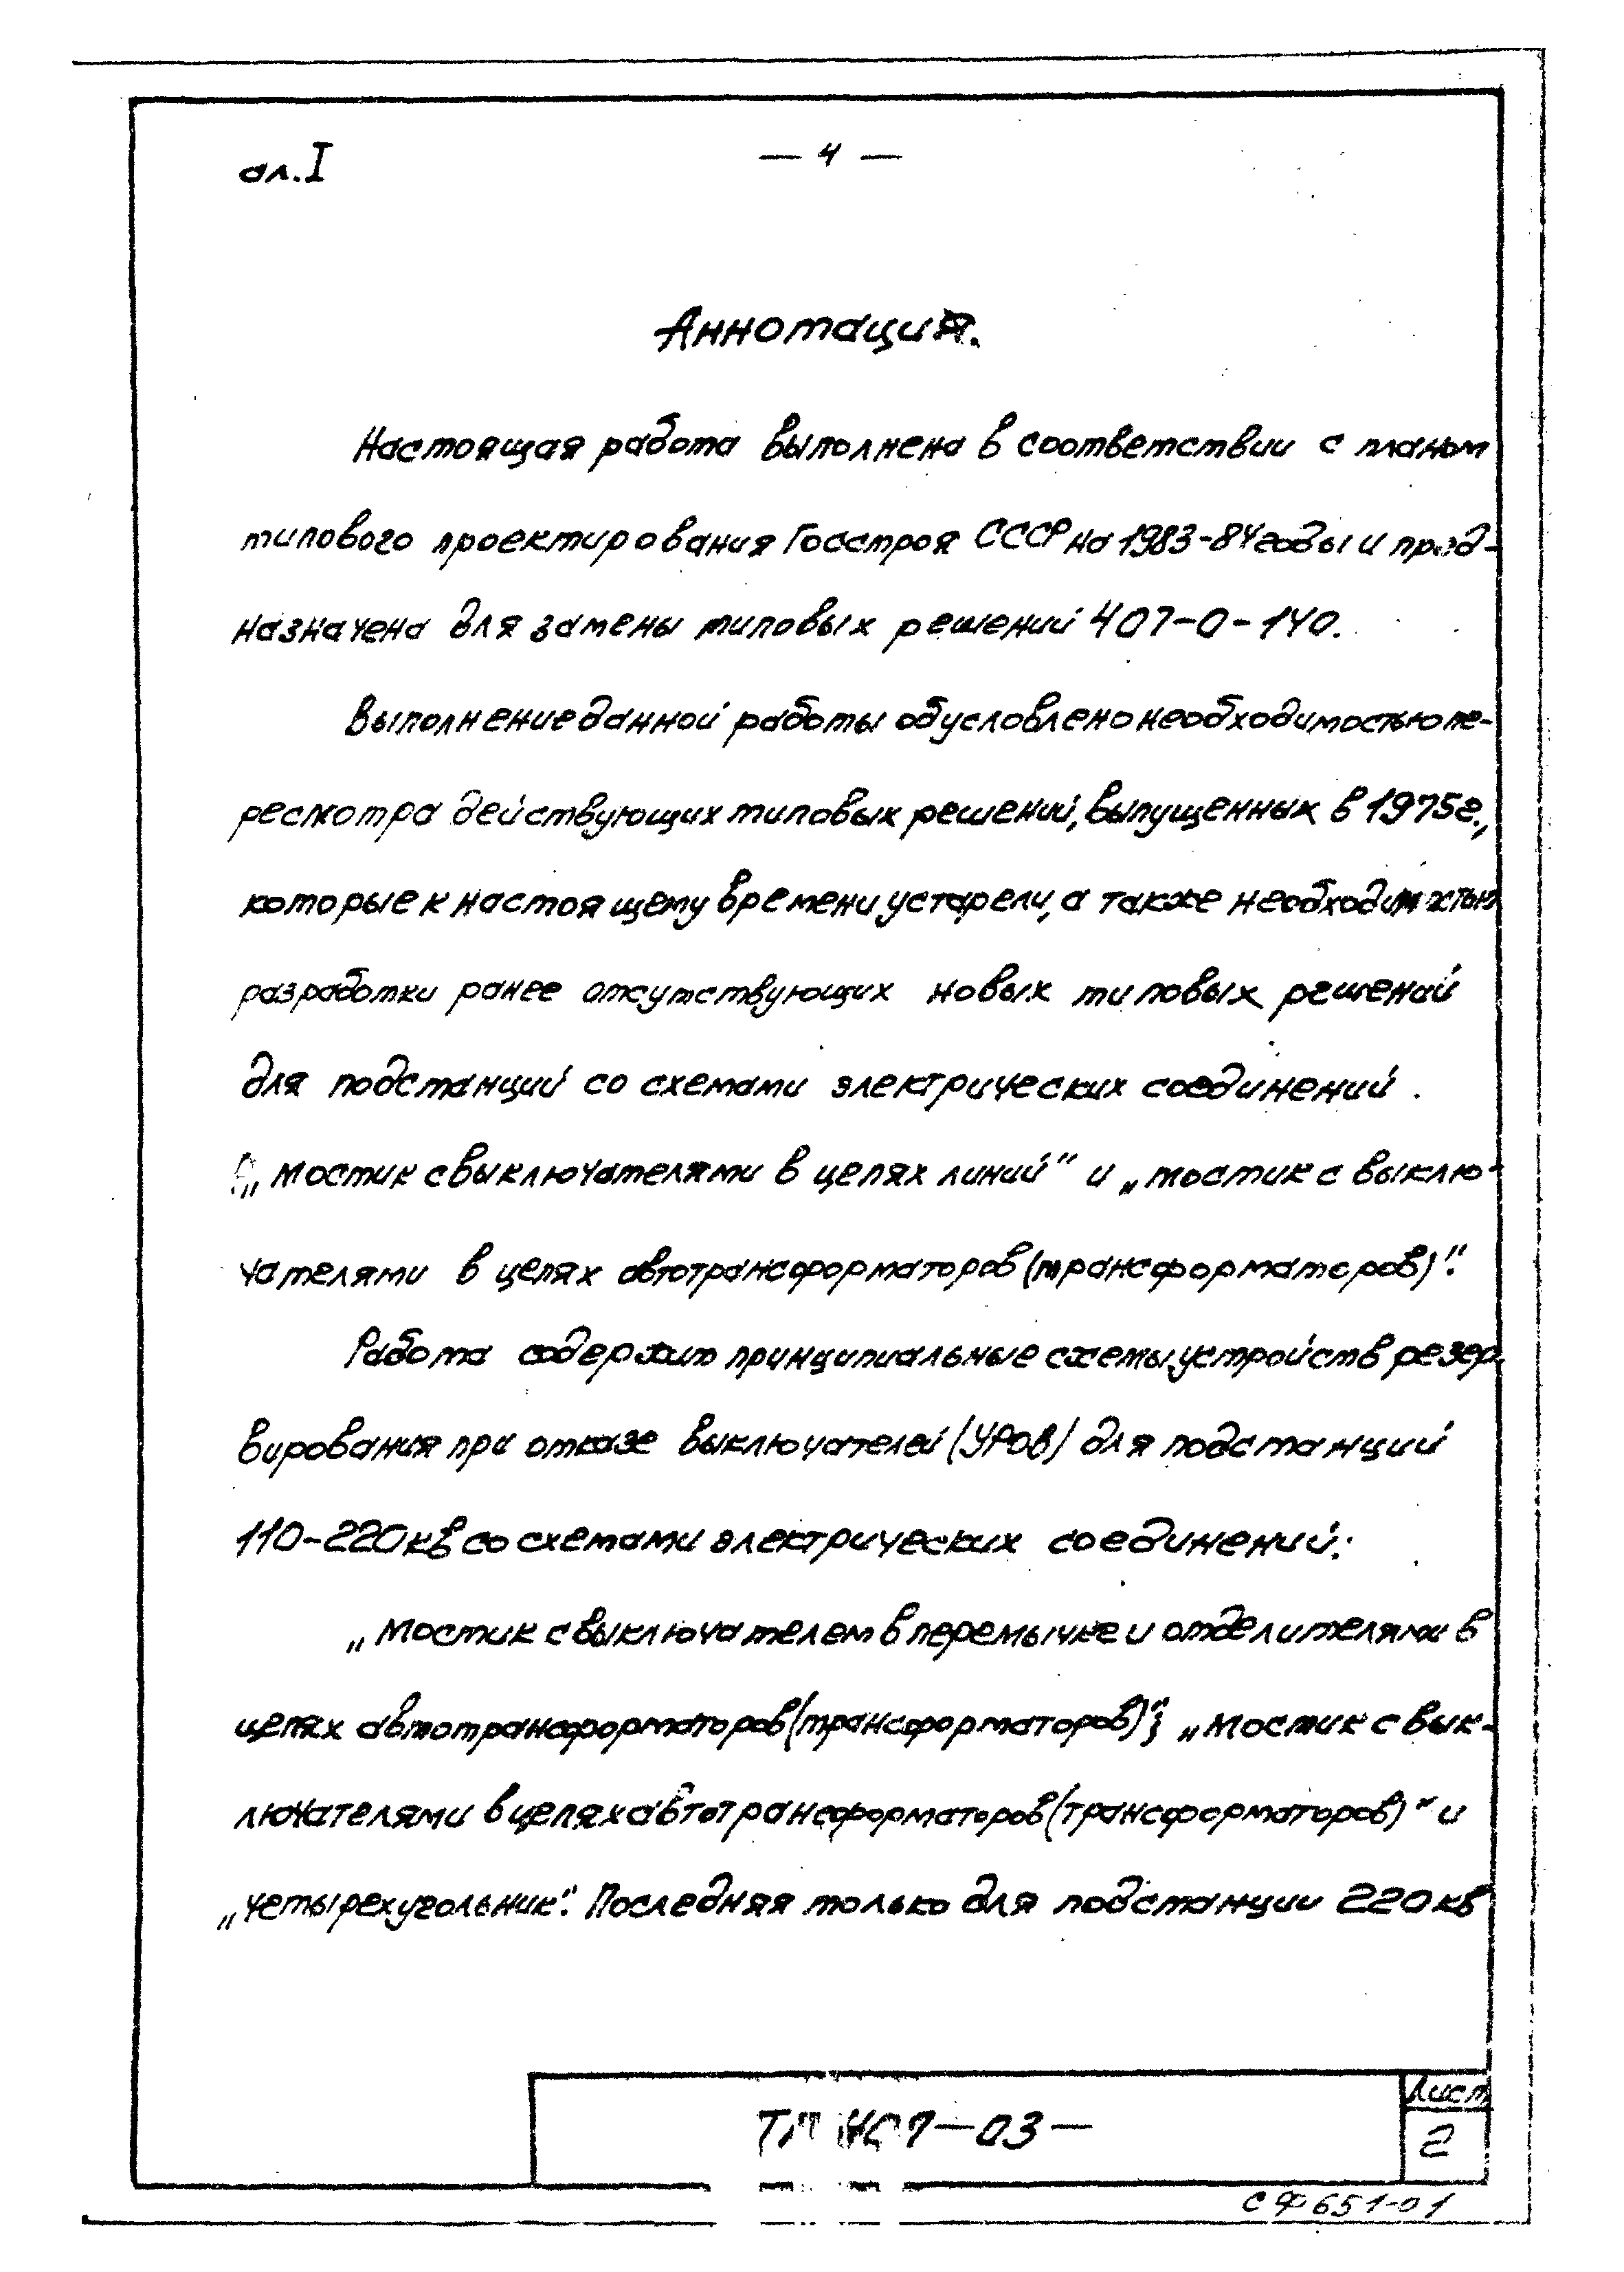 ал. I
— 4 —
Аннотация.
Настоящая работа выполнена в соответствии с планом
типового проектирования Госстроя СССР на 1983-84 годы и пред-
назначена для замены типовых решений 407-0-140.
Выполнение данной работы обусловлено необходимостью пе-
ресмотра действующих типовых решений, выпущенных в 1975г.,
которые к настоящему времени устарели, а также необходимостью
разработки ранее отсутствующих новых типовых решений
для подстанций со схемами электрических соединений
„мостик с выключателями в цепях линий" и „мостик с выклю-
чателями в цепях автотрансформаторов (трансформаторов)".
Работа содержит принципиальные схемы устройств резер-
вирования при отказе выключателей (УРОВ) для подстанций
110-220кВ со схемами электрических соединений:
„Мостик с выключателем в перемычке и отделителями в
цепях автотрансформаторов (трансформаторов)"; „Мостик с вык-
лючателями в цепях автотрансформаторов (трансформаторов)" и
„четырехугольник". Последняя только для подстанции 220кВ
ТП 407-03-
Лист
2
СФ 651-01